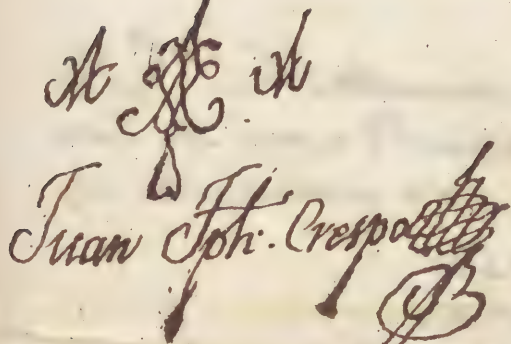 Juan Jph. Crespo